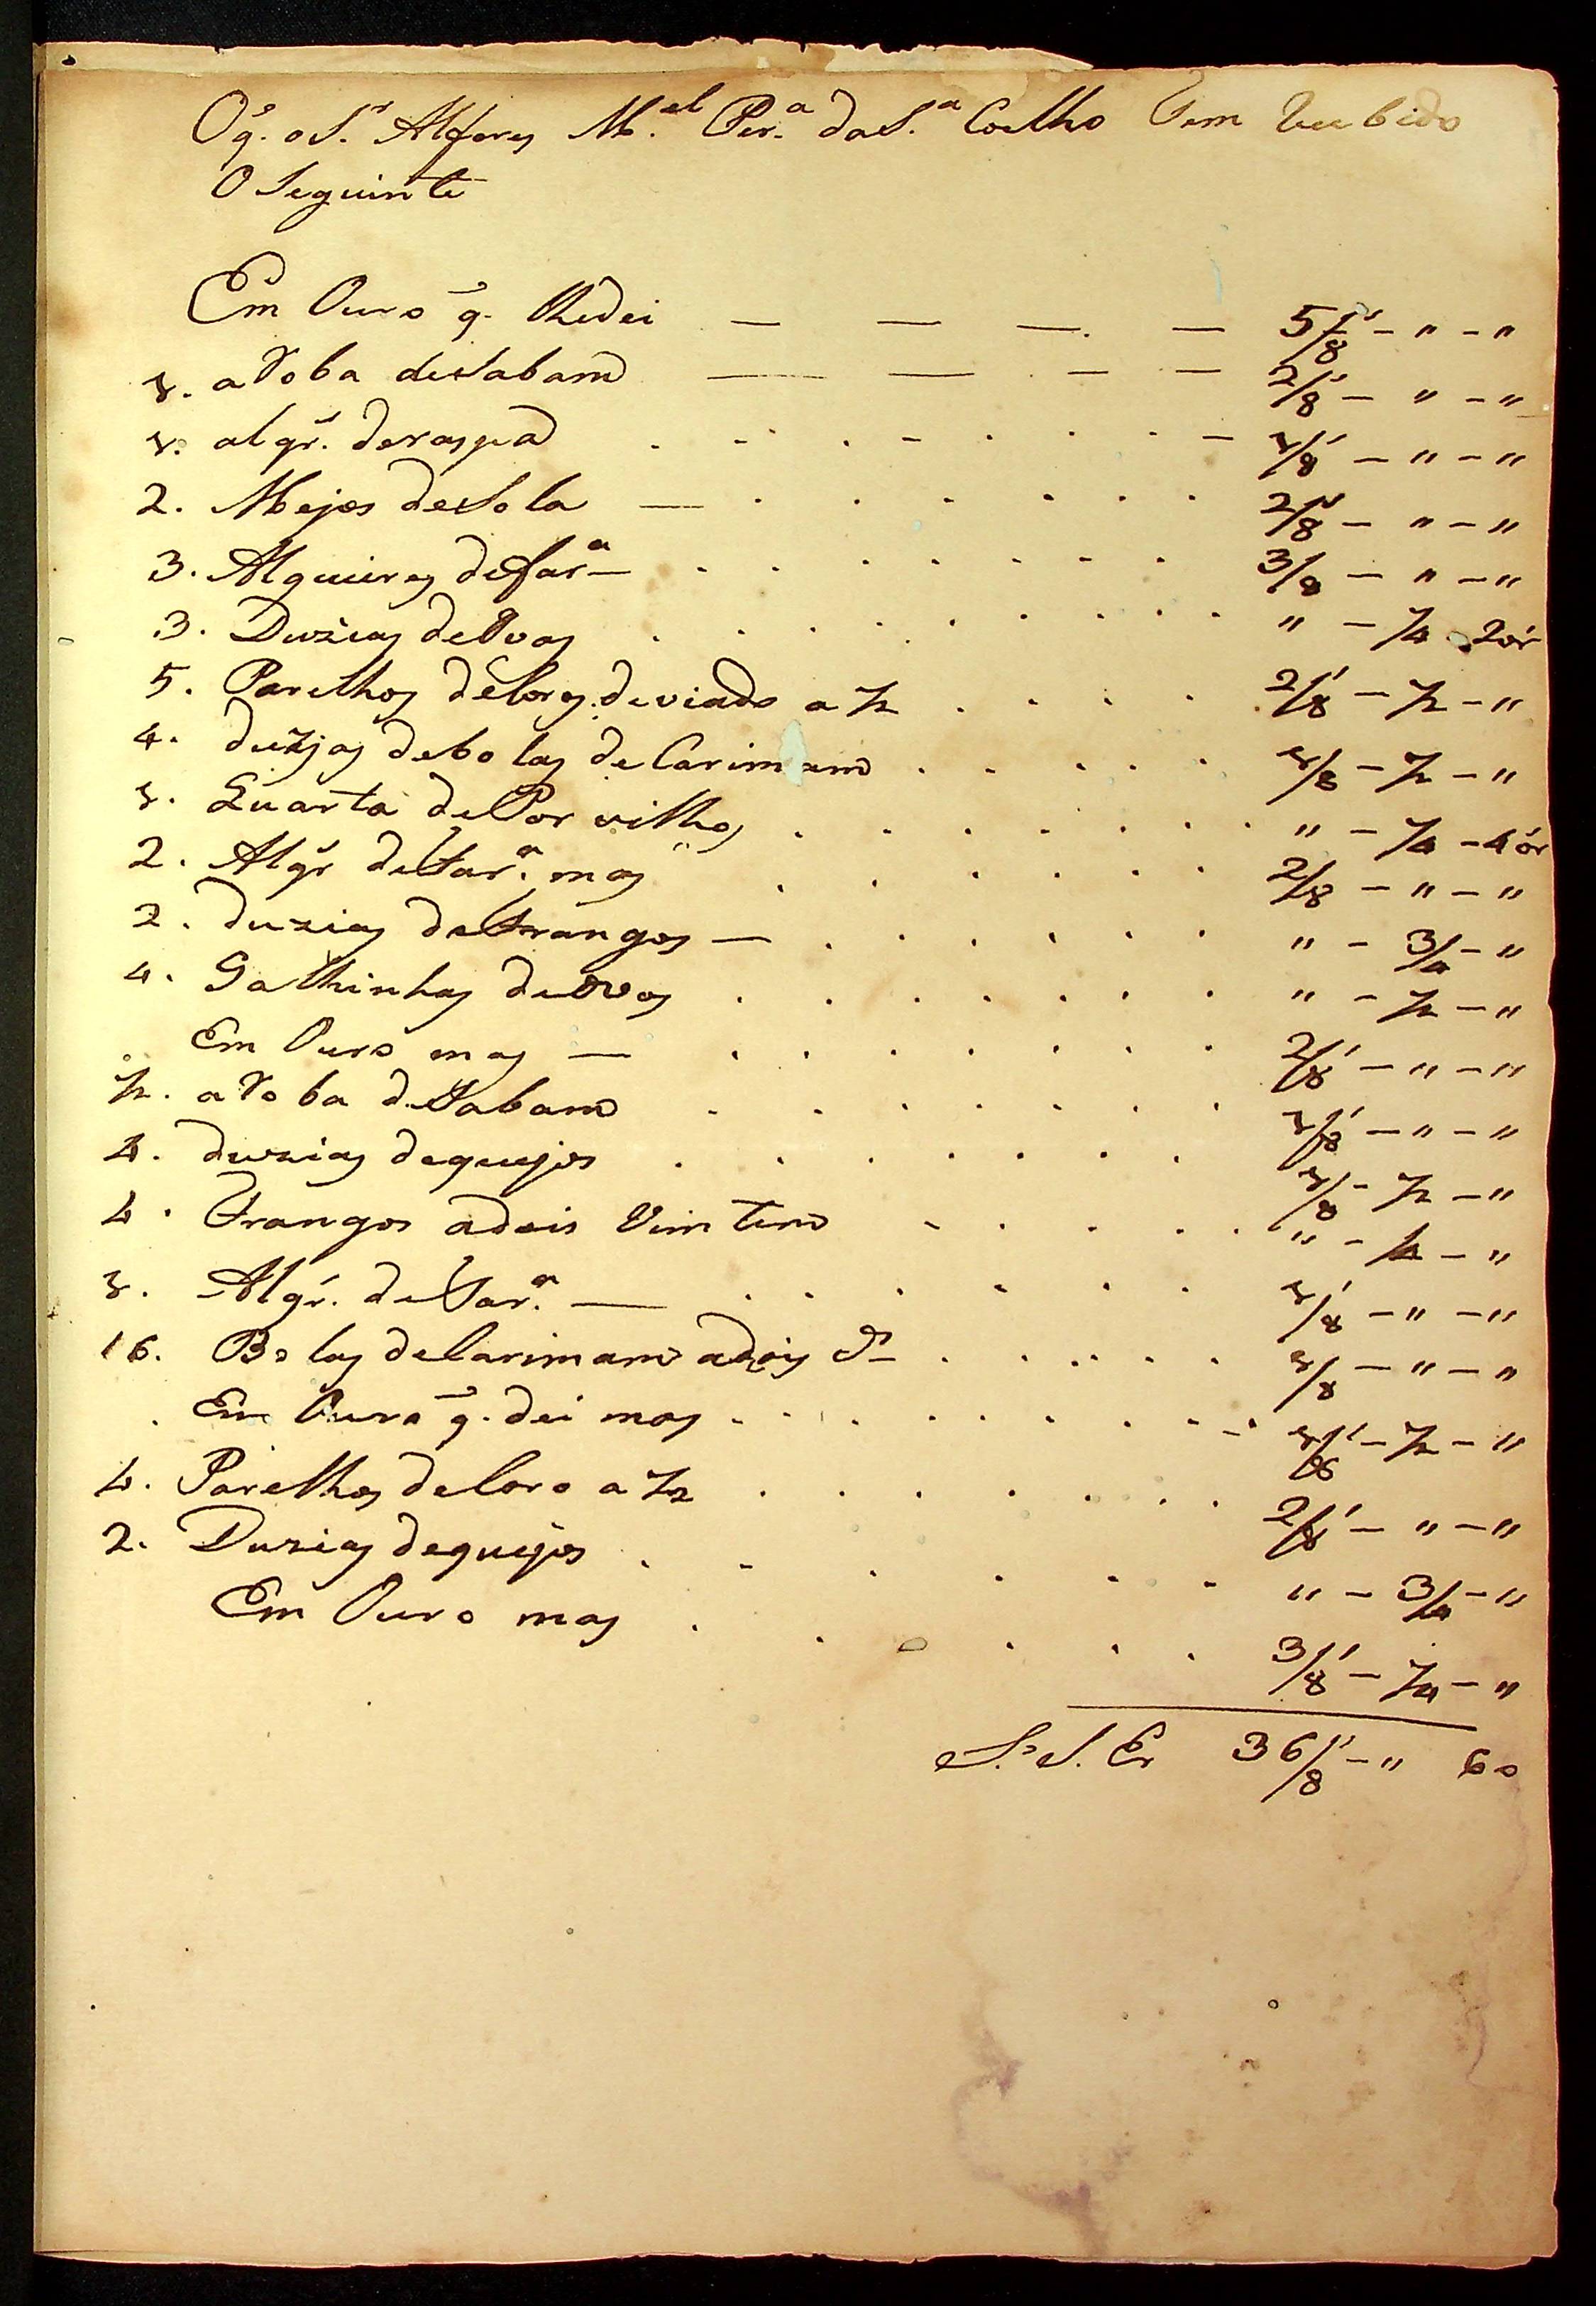 O q̃. o S.r Alferes M.el Per.a da S.a Coelho tem Recebido
O Seguinte
Em Ouro q̃. lhe dei — — — — 5/8 - " - "
1. aRoba de Sabam — — — — 2/8 - " - "
1. alqr̃. de raspad . - . - . . . - 1/8 - " - "
2. Mejos de Sola — . . . . . . 2/8 - " - "
3. Alqueires de far.a . . . . . . 3/8 - " - "
3. Duzias de Ovos . . . . . . . " - 1/4 - 2 ór
5. Parelhos de Coros de viado a 1/2 . . . . 2/8 - 1/2 - "
4. duzjas de bolas de Carimam . . . . . 1/8 - 1/2 - "
1. Quarta de Porvilhos . . . . . . . " - 1/4 - 4 ór
2. Alqr̃ de Far.a mas . . . . . . 2/8 - " - "
2. duzias de Frangos — . . . . . . " - 3/4 - "
4. Galhinhas de Ovos . . . . . . . " - 1/2 - "
Em Ouro mas — . . . . . . . 2/8 - " - "
1/2. aRoba de Sabam . . . . . . . 1/8 - " - "
4. duzias de queijos . . . . . . . 1/8 - 1/2 - "
4. Frangos a dois Vimtem . . . . . " - 1/4 - "
1. Alqr̃. de Far.a — . . . . . . 1/8 - " - "
16. Bolas de Carimam a dois d.o . . . . . 1/8 - " - "
Em Ouro q̃. dei mas . . . . . . . . 1/8 - 1/2 - "
4. Parelhos de Coro a 1/2 . . . . . . . 2/8 - " - "
2. Duzias de queijos . . . . . . " - 3/4 - "
Em Ouro mas . . . . . . 3/8 - 1/4 - "
S. S. Er 36/8 - " 6 o